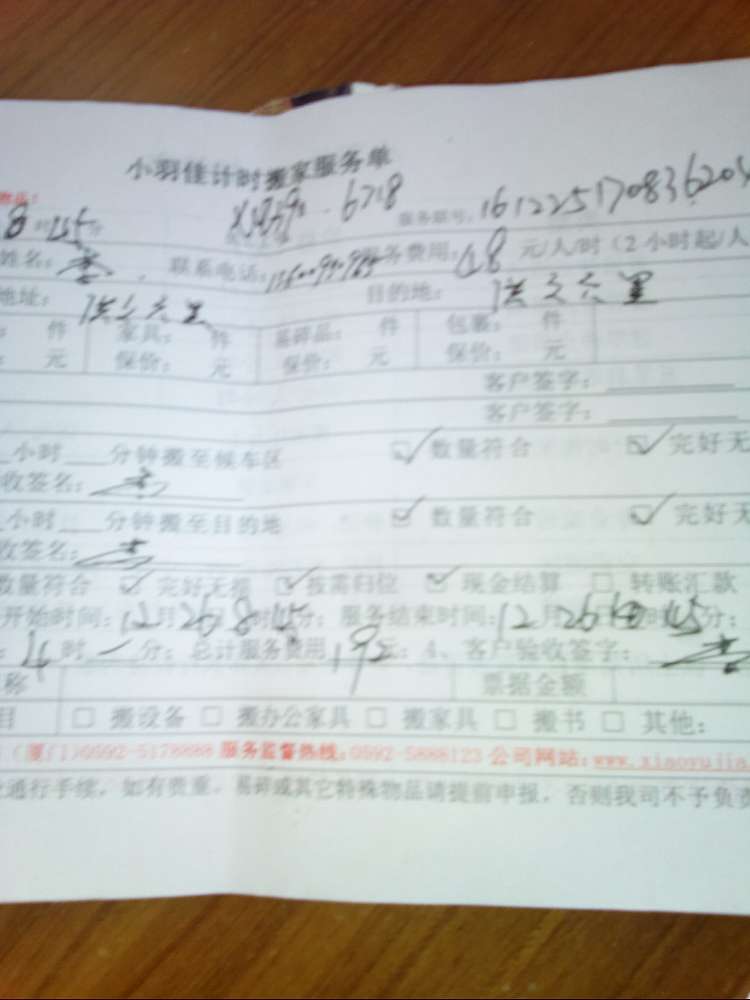 小羽佳计时搬家服务单
物品：
8时45分 6718 服务账号：161225170836204
姓名：李 联系电话： 服务费用：48元/人/时（2小时起/人
地址：洪文六里 目的地：洪文六里
件 家具： 件 易碎品： 件 包裹： 件
元 保价： 元 保价： 元 保价： 元
客户签字：
客户签字：
小时 分钟搬至候车区 ☑数量符合 ☑完好无
收签名：李
小时 分钟搬至目的地 ☑数量符合 ☑完好无
收签名：李
数量符合 ☑完好无损 ☑按需归位 ☑现金结算 □转账汇款
开始时间：12月26日8时45分；服务结束时间：12月26日 时45分；
：4时 分；总计服务费用192元；4、客户验收签字：李
称 票据金额
目 □搬设备 □搬办公家具 □搬家具 □搬书 □其他：
（厦门）0592-5178888 服务监督热线：0592-5888123 公司网站：www.xiaoyujia.
通行手续，如有贵重、易碎或其它特殊物品请提前申报，否则我司不予负责